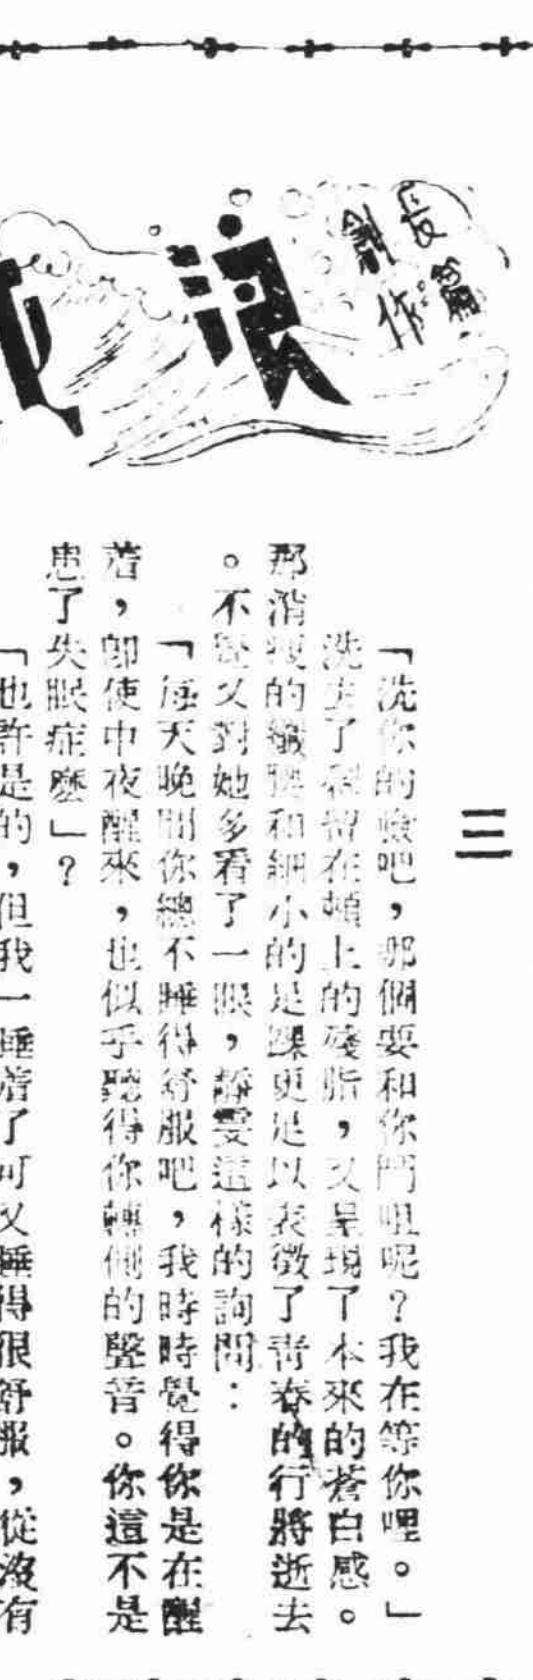 長篇
創作
浪
三
「洗你的臉吧，那個要和你鬥咀呢？我在等你哩。」
洗去了殘留在頰上的殘脂，又呈現了本來的蒼白感。
那消瘦的纖腰和細小的足踝更足以表徵了青春的行將逝去
。不覺又對她多看了一眼，靜雯這樣的詢問：
「每天晚間你總不睡得舒服吧，我時時覺得你是在醒
着，卽使中夜醒來，也似乎聽得你轉側的聲音。你這不是
患了失眠症麼」？
「也許是的，但我一睡着了可又睡得很舒服，從沒有